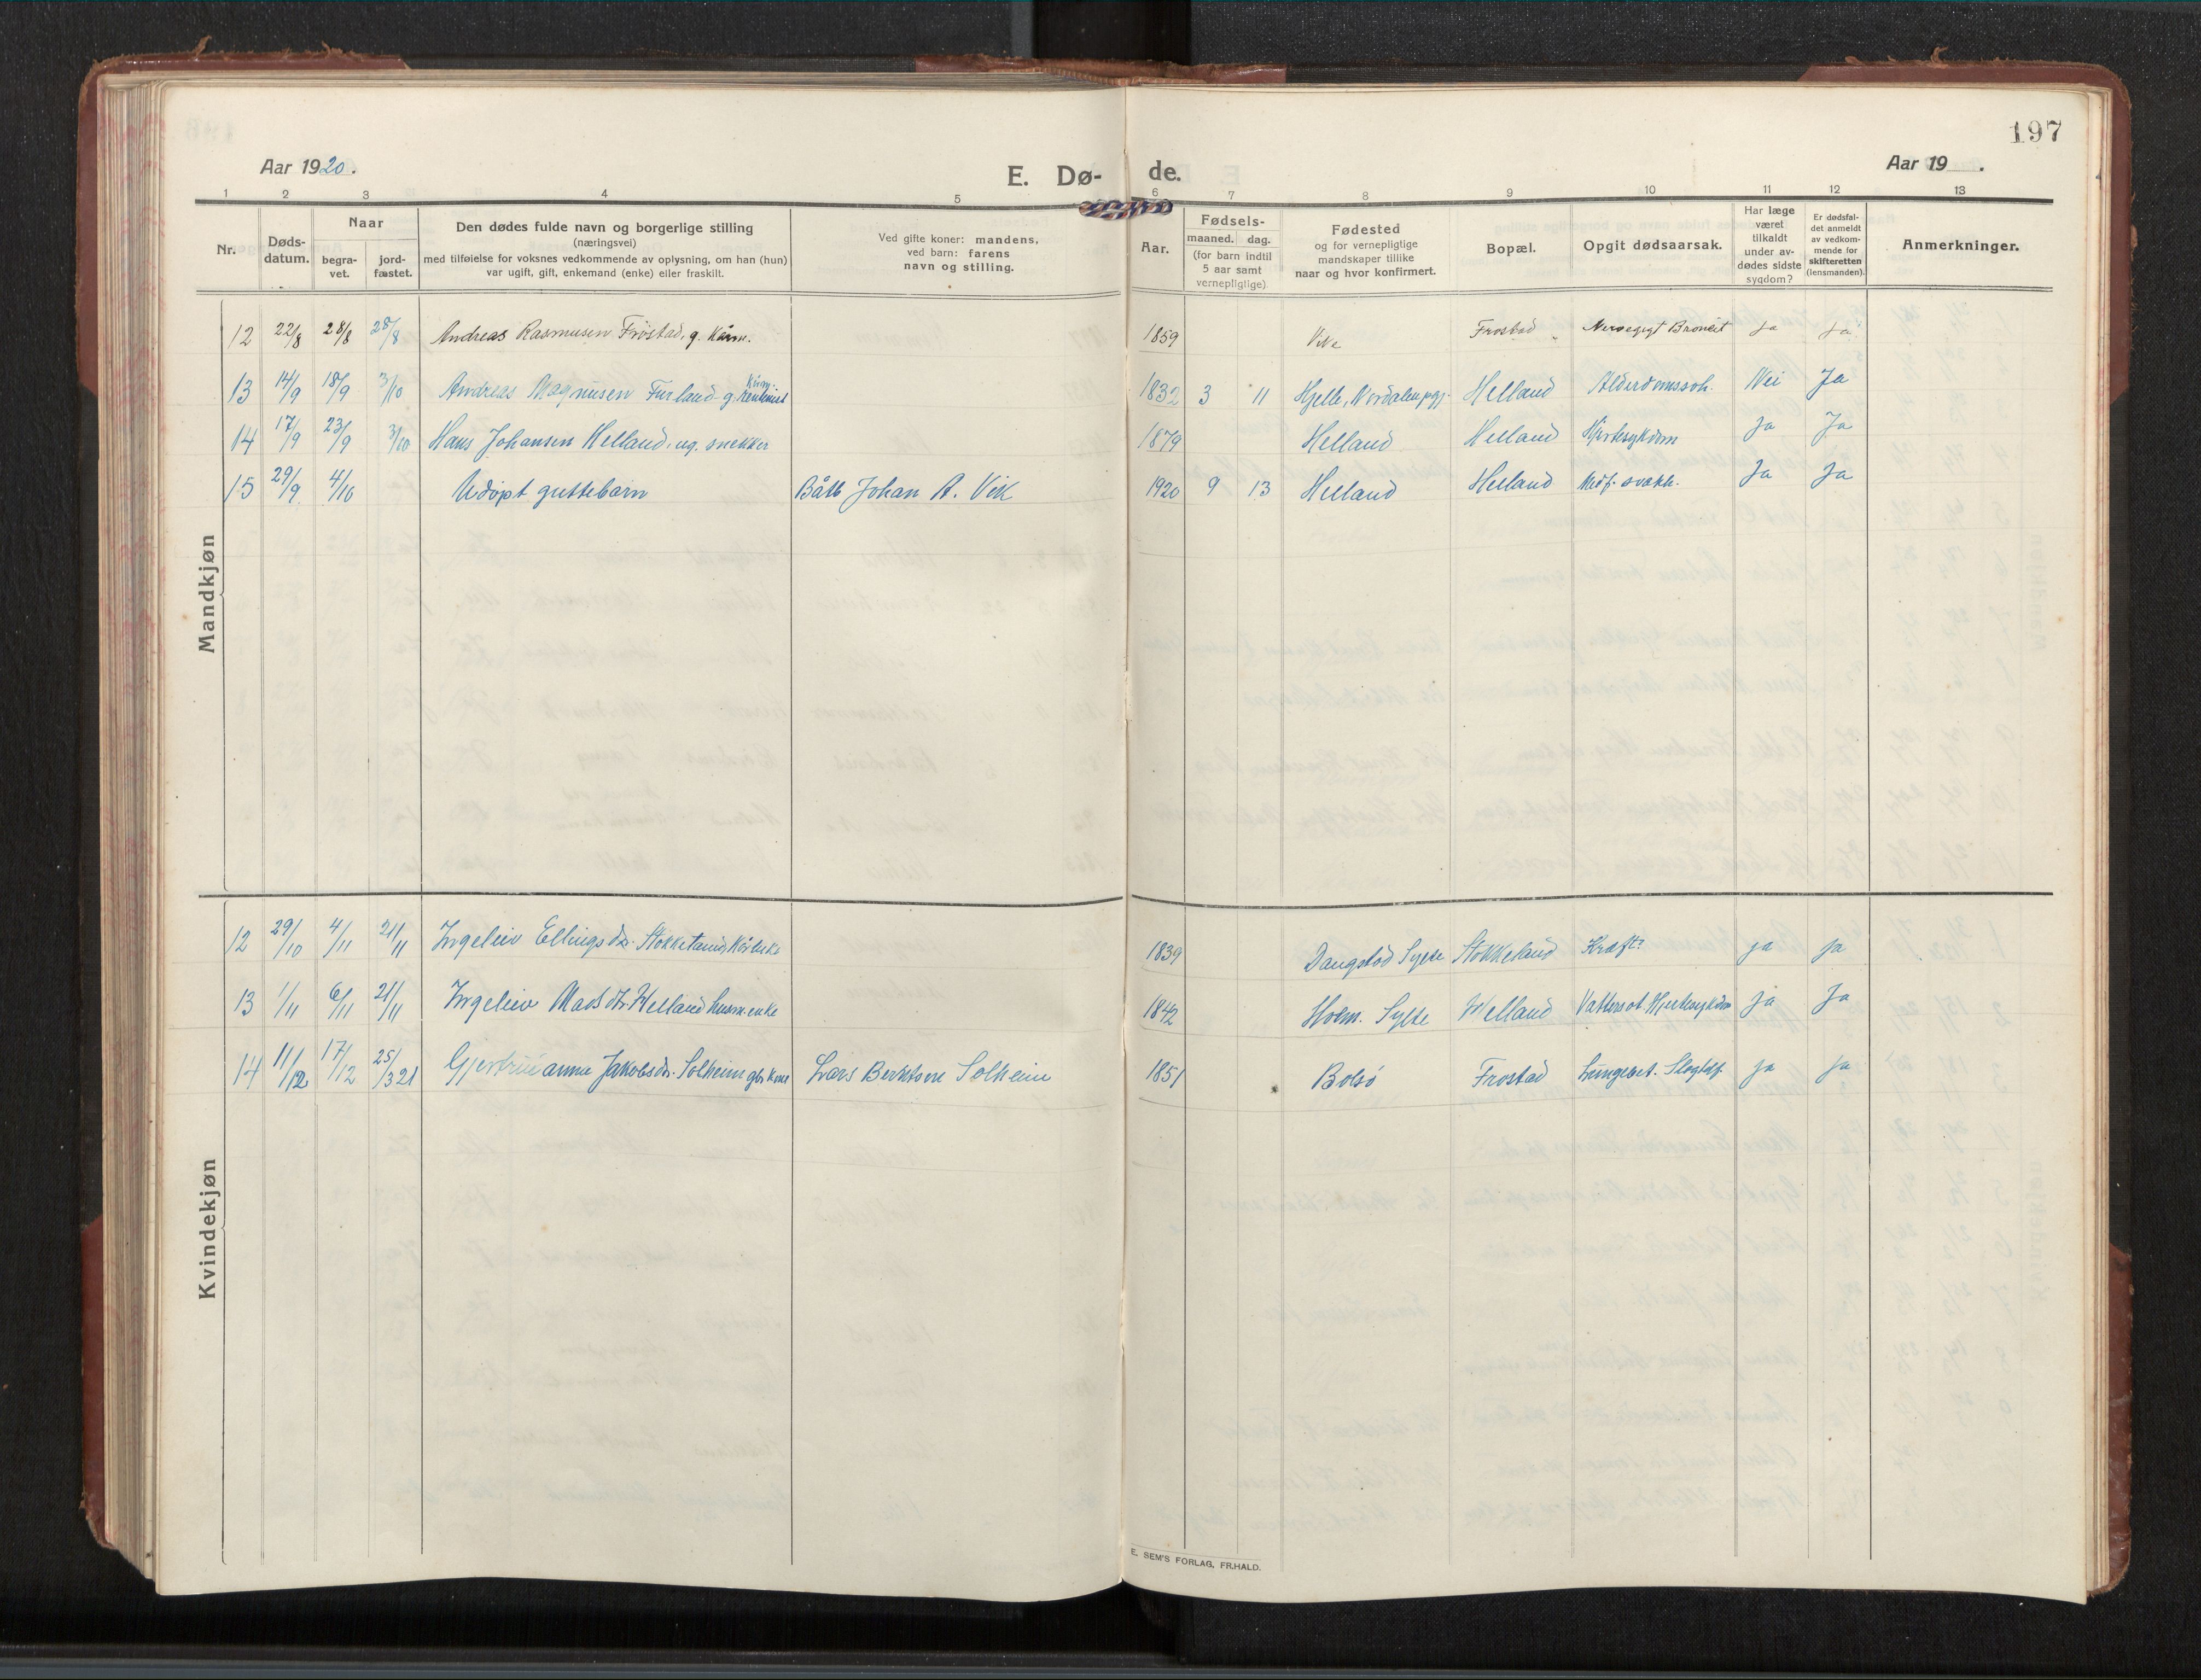 197
Aar 1920. E. Dø- de. Aar 19 .
1 2 3 4 5 6 7 8 9 10 11 12 13
Nr.
Døds-
datum.
Naar
begra-
vet.
jord-
fæstet.
Den dødes fulde navn og borgerlige stilling
(næringsvei)
med tilføielse for voksnes vedkommende av oplysning, om han (hun)
var ugift, gift, enkemand (enke) eller fraskilt.
Ved gifte koner: mandens,
ved barn: farens
navn og stilling.
Aar.
Fødsels-
maaned. dag.
(for barn indtil
5 aar samt
vernepligtige)
Fødested
og for vernepligtige
mandskaper tillike
naar og hvor konfirmert.
Bopæl.
Opgit dødsaarsak.
Har læge
været
tilkaldt
under av-
dødes sidste
sygdom?
Er dødsfal-
det anmeldt
av vedkom-
mende for
skifteretten
(lensmanden).
Anmerkninger.
Mandkjøn
12 22/8 28/8 28/8 Andreas Rasmusen Frostad, g. Kårm. 1859 Vike Frostad ja ja
13 14/9 18/9 3/10 Andreas Magnusen g. 1832 3 11 Hjelle, Nordalen pgj. Helland Alderdomssvh. Nei Ja
14 17/9 23/9 3/10 Hans Johansen Helland, ug. snekker 1879 Helland Helland Hjertesykdom Ja Ja
15 29/9 4/10 Udøpt guttebarn Johan A. Vik 1920 9 13 Helland Helland Medf. svakh. Ja Ja
Kvindekjøn
12 29/10 4/11 21/11 Ingeleiv Ellingsdr. Stokkeland 1839 Sylte Stokkeland Kræft ja ja
13 1/11 6/11 21/11 Ingeleiv Madsdtr. Helland husm.enke 1842 Holm. Sylte Helland Vattersot. Hjertesykdom ja Ja
14 11/12 17/12 25/3 21 Gjertrud anna Jakobsdr. Solheim gbr.kone Lars Berntsen Solheim 1851 Bolsø Frostad Lungebet. Slagtilf. ja ja
E. SEM'S FORLAG, FR.HALD.